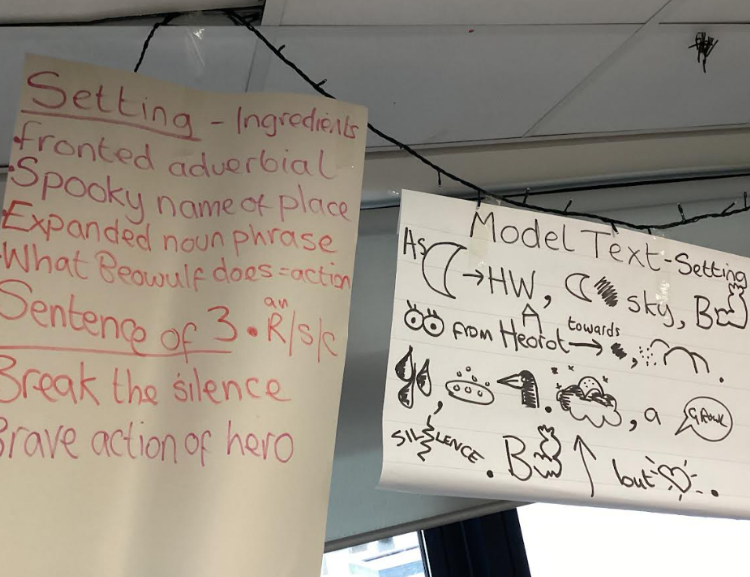 Setting - Ingredients
• fronted adverbial
• Spooky name of place
Expanded noun phrase
• What Beowulf does = action
Sentence of 3 • an R/s/c
Break the silence
Brave action of hero
Model Text - Setting
As → HW, sky, B
from Heorot towards → , .
, . , a GROWL
SILENCE. B ↑ but .